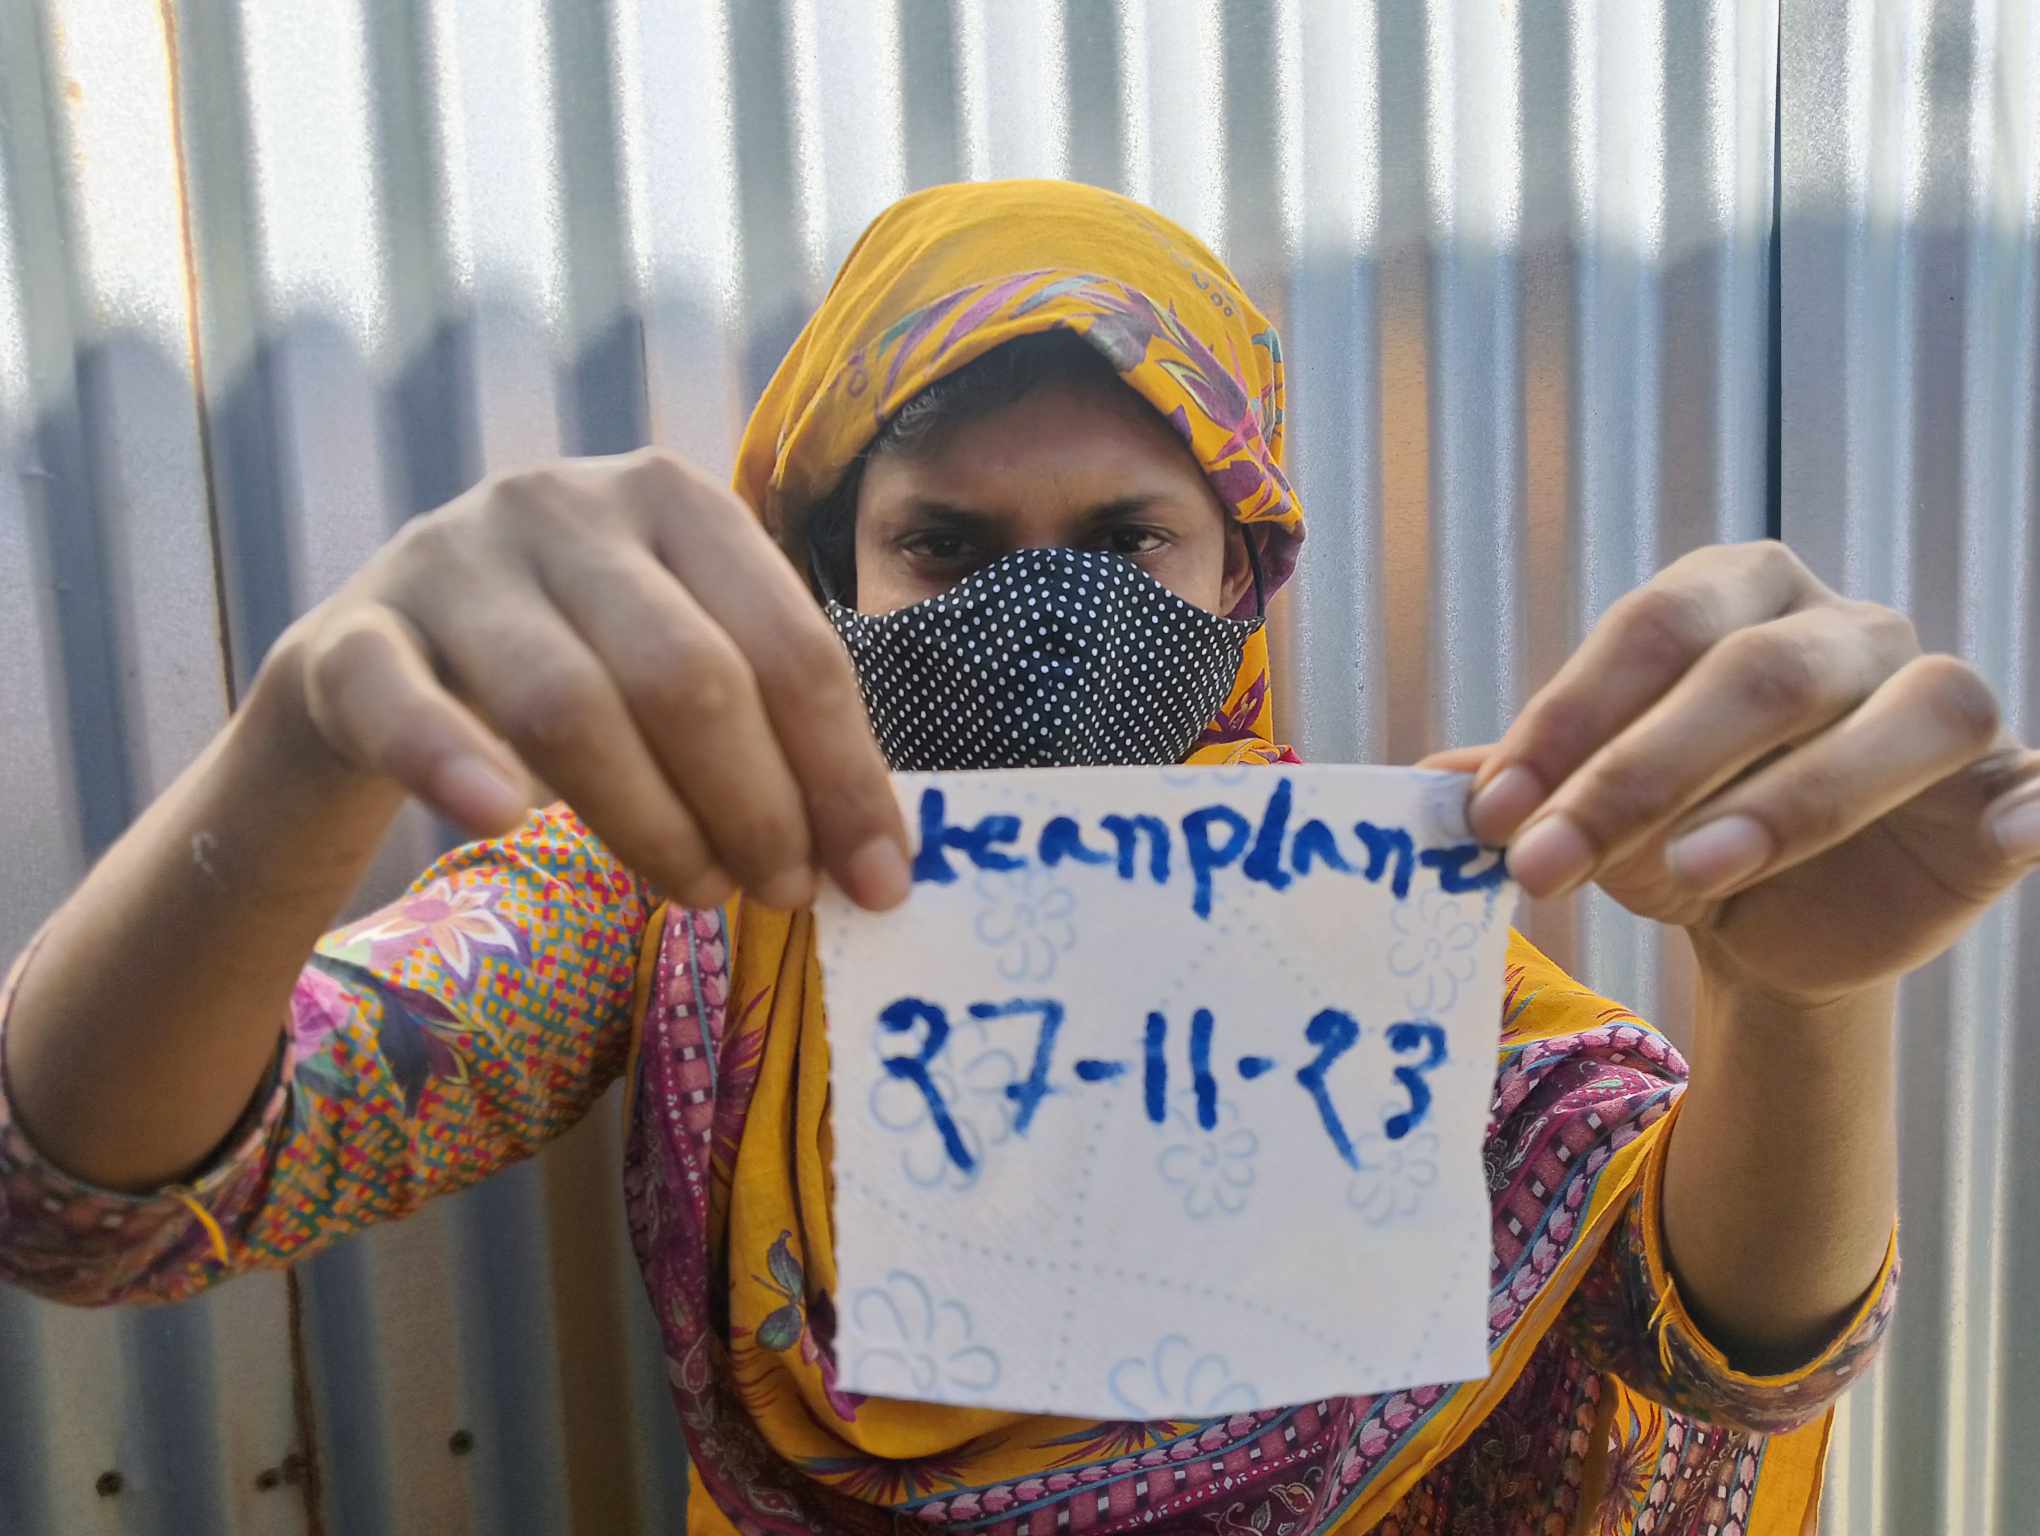 teanplane
27-11-23